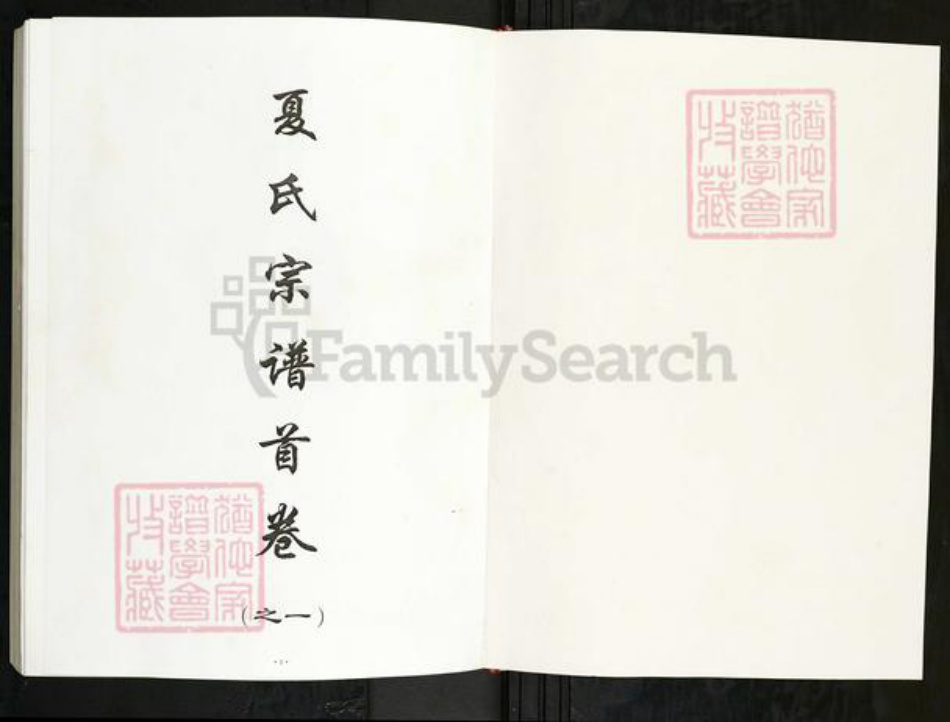 夏氏宗谱首卷
（之一）
猶他家
譜學會
收藏
FamilySearch
猶他家
譜學會
收藏